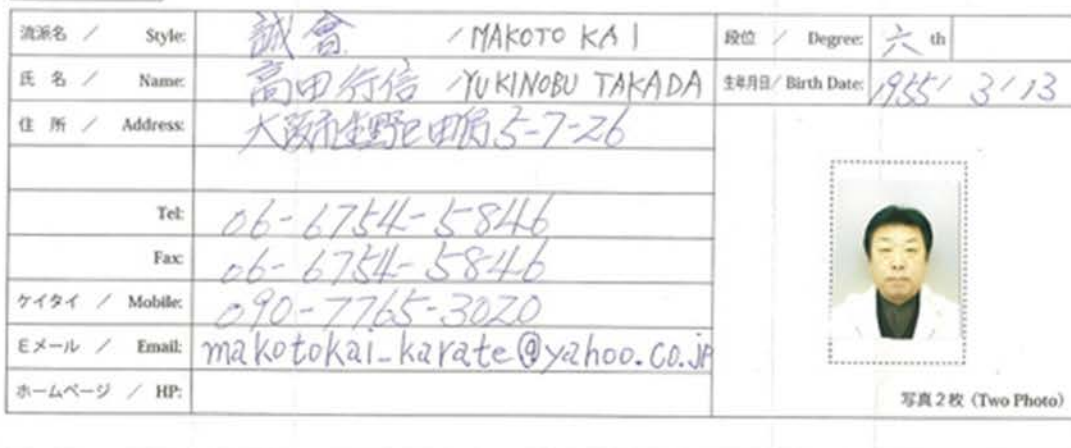 流派名 / Style: 誠會 / MAKOTO KAI
段位 / Degree: 六 th
氏 名 / Name: 高田行信 / YUKINOBU TAKADA
生年月日 / Birth Date: 1955/ 3/ 13
住 所 / Address: 大阪市生野区田島5-7-26
Tel: 06-6754-5846
Fax: 06-6754-5846
ケイタイ / Mobile: 090-7765-3020
Eメール / Email: makotokai_karate@yahoo.co.jp
ホームページ / HP:
写真2枚 (Two Photo)